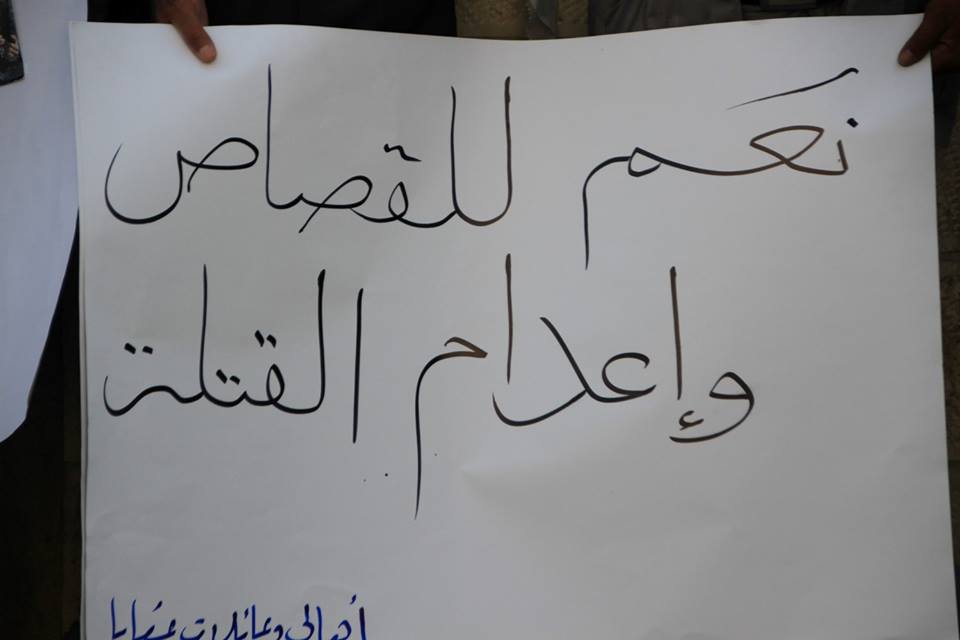 نَعم للقصاص
وإعدام القتلة
أهالي وعائلات ضحايا